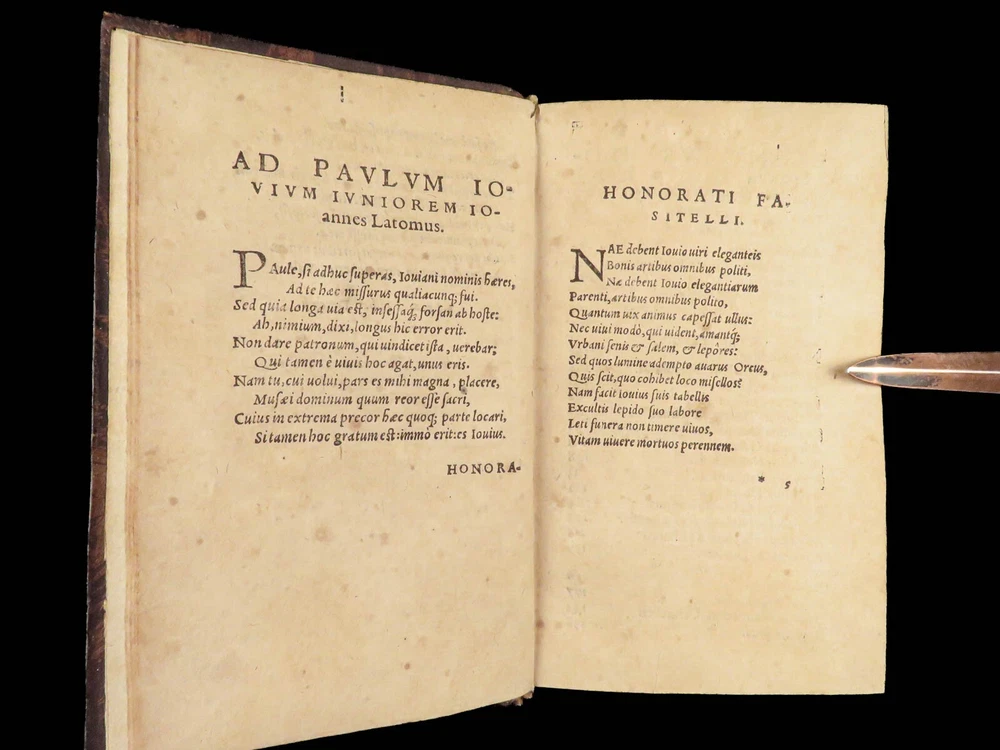 AD PAVLVM IO-
VIVM IVNIOREM IO-
annes Latomus.
PAule, si adhuc superas, Iouiani nominis hæres,
Ad te hæc missurus qualiacunq; fui.
Sed quia longa uia est, insessaq́; forsan ab hoste:
Ah, nimium, dixi, longus hic error erit.
Non dare patronum, qui uindicet ista, uerebar;
Qui tamen è uiuis hoc agat, unus eris.
Nam tu, cui uolui, pars es mihi magna, placere,
Musæi dominum quum reor esse sacri,
Cuius in extrema precor hæc quoq; parte locari,
Si tamen hoc gratum est: immò erit: es Iouius.
HONORA-
HONORATI FA-
SITELLI.
NAE debent Iouio uiri eleganteis
Bonis artibus omnibus politi,
Næ debent Iouio elegantiarum
Parenti, artibus omnibus polito,
Quantum uix animus capessat ullus:
Nec uiui modò, qui uident, amantq́;
Vrbani senis & salem, & lepôres:
Sed quos lumine adempto auarus Orcus,
Quis scit, quo cohibet loco misellos?
Nam facit Iouius suis tabellis
Excultis lepido suo labore
Leti funera non timere uiuos,
Vitam uiuere mortuos perennem.
* 5